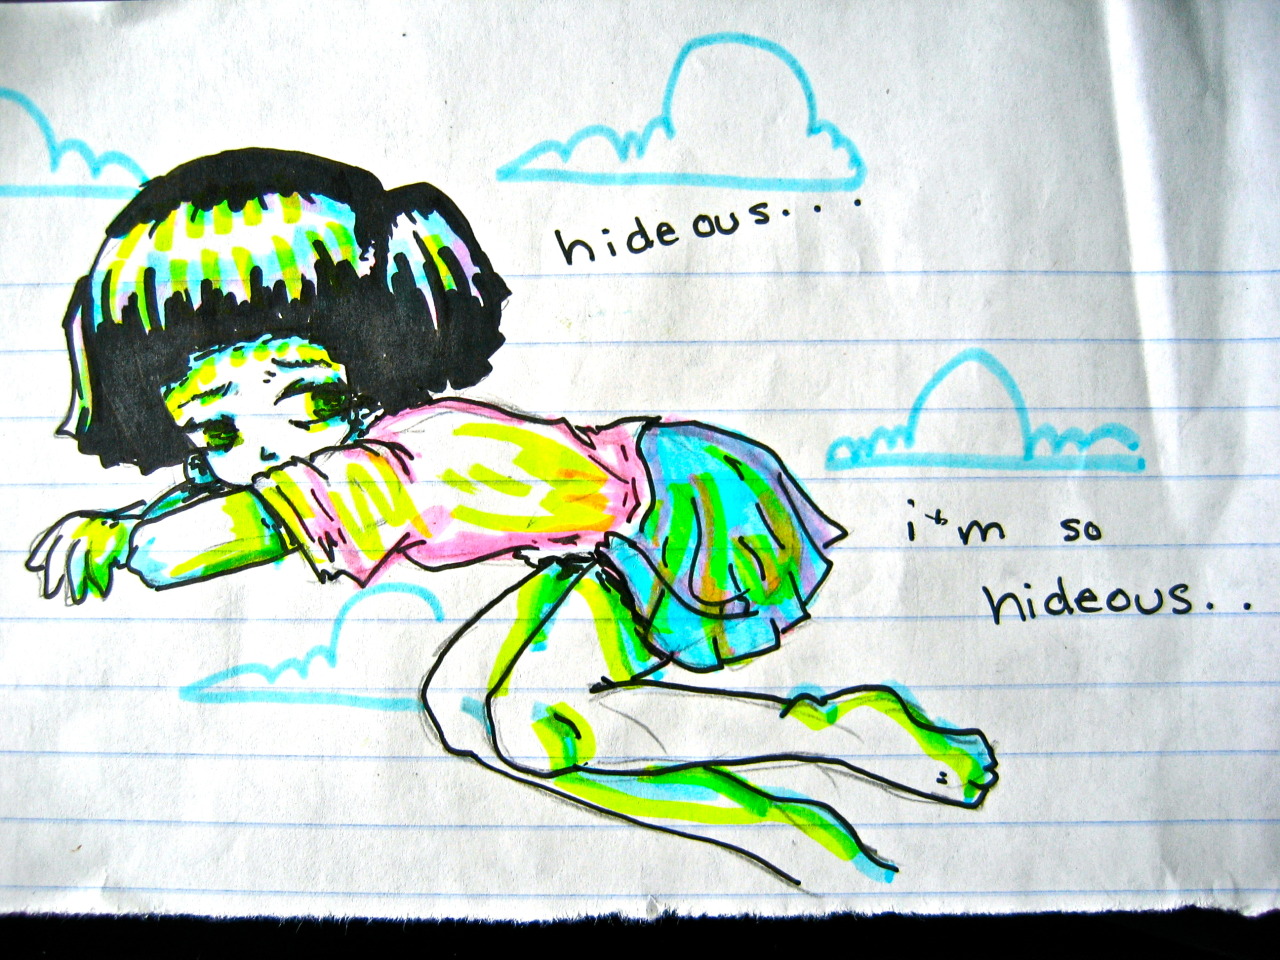 hideous...
i'm so
hideous..